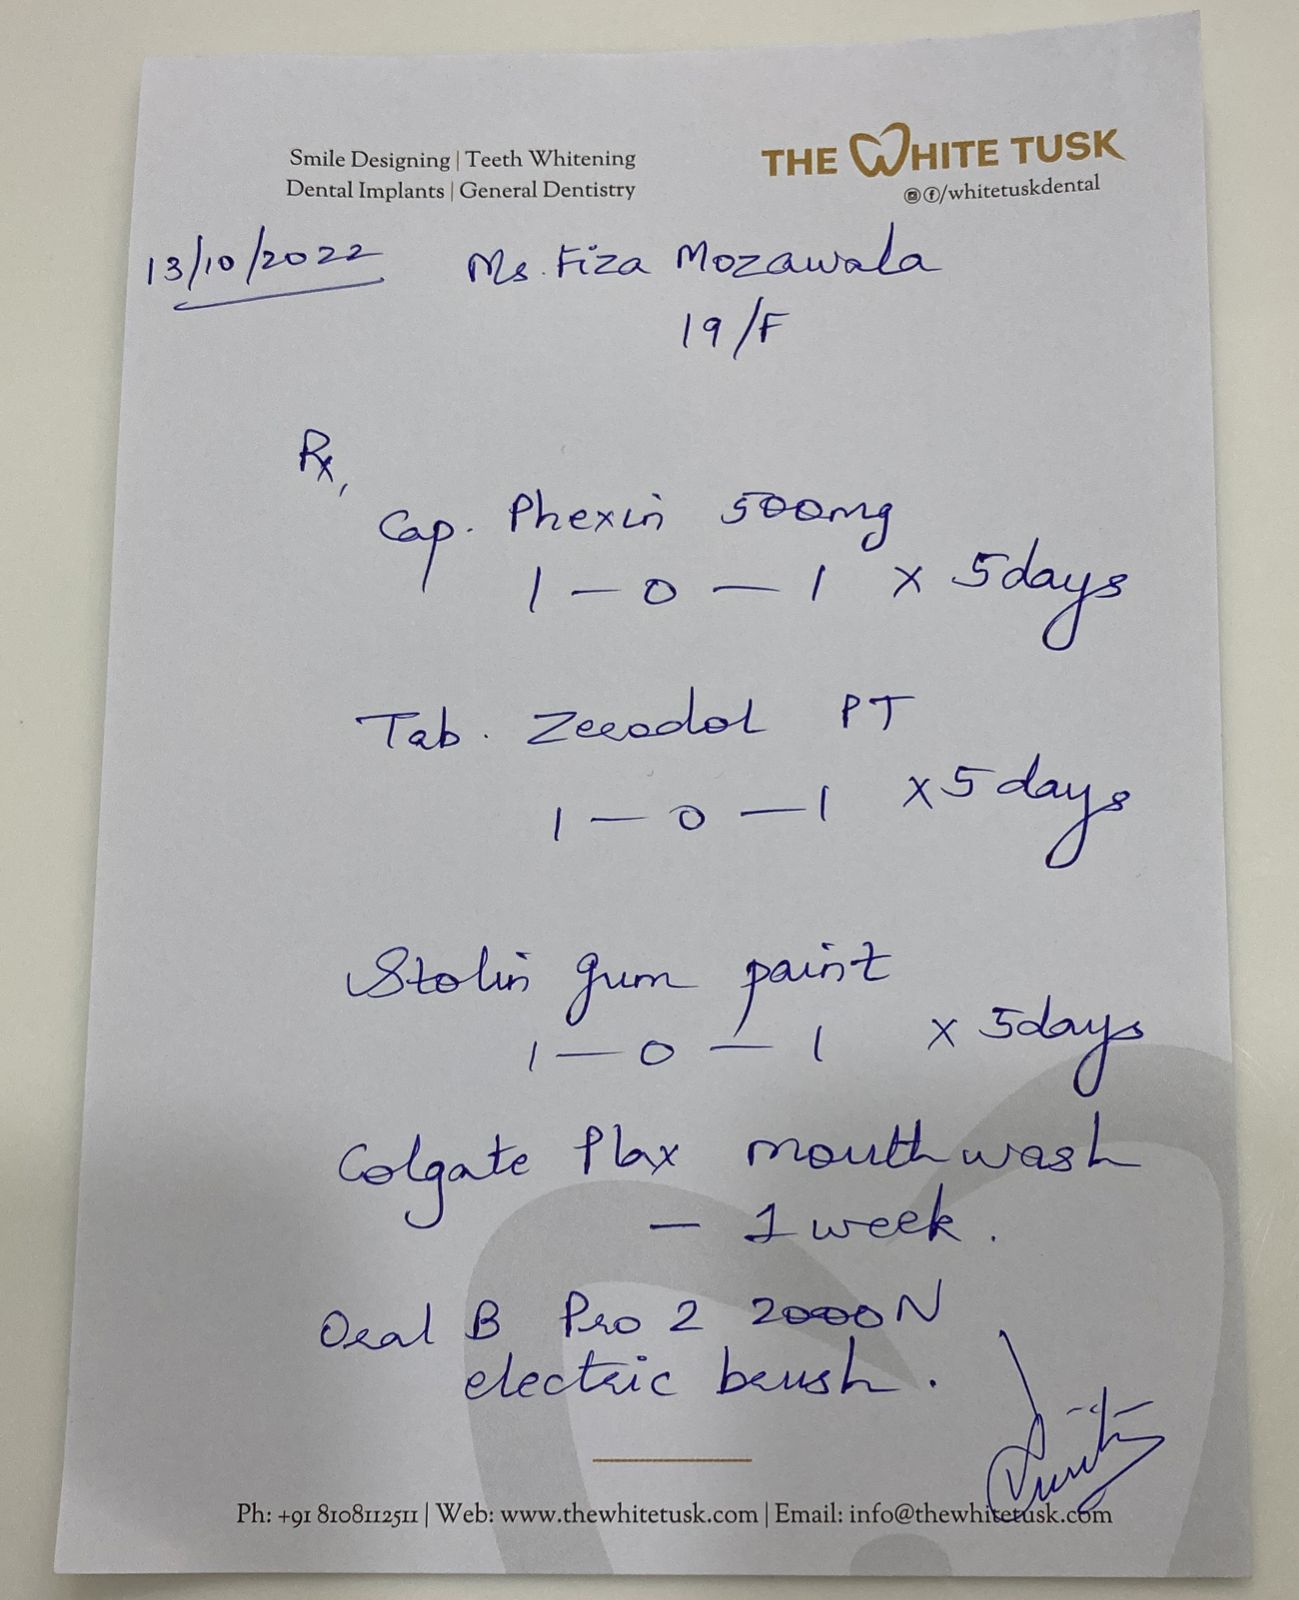 Smile Designing | Teeth Whitening
Dental Implants | General Dentistry
THE WHITE TUSK
/whitetuskdental
13/10/2022
Ms. Fiza Mozawala
19/F
Rx,
Cap. Phexin 500mg
1 — 0 — 1 x 5 days
Tab. Zerodol PT
1 — 0 — 1 x 5 days
Stolin gum paint
1 — 0 — 1 x 5 days
Colgate Plax mouthwash
— 1 week.
Oral B Pro 2 2000 N
electric brush.
Ph: +91 8108112511 | Web: www.thewhitetusk.com | Email: info@thewhitetusk.com